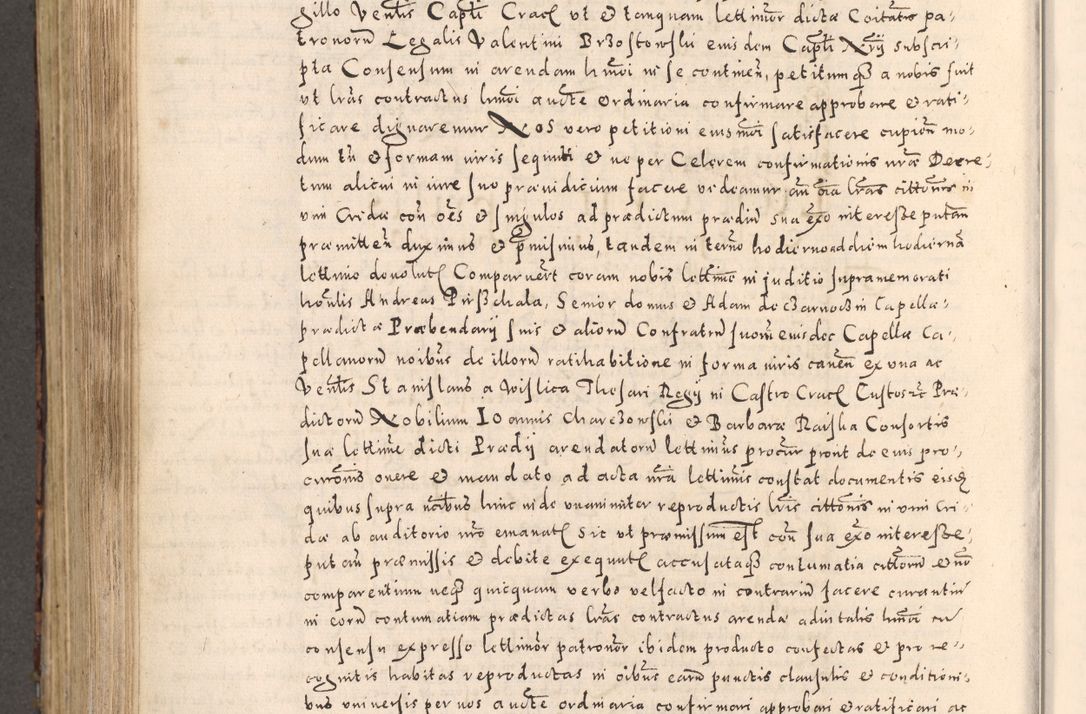 gillo Venlis Capli Crac ut et tanquam lettimor dictæ Coitatis pa-
tronorū Legalis Valentini Brzostowski eiusdem Capli Nrij subscri-
pta Consensum in arendam hmōi in se continen, petitumq a nobis fuit
ut lras contractus hmōi aucte ordinaria confirmare approbare et rati-
ficare dignaremur Nos vero petitioni eius mōi satisfacere cupien mo-
dum tn et formam iuris sequuti et ne per Celerem confirmationis nræ Decre-
tum alicui in iure suo præiudicium facere videamur an oīa lras cittonis in
vim Cridæ con oēs et singulos ad prædictum prædiū sua exo interesse putan
præmitten duximus et pmisimus, tandem in termo hodierno ad diem hodiernā
lettimo devolut Comparuert coram nobis lettime in juditio supramemorati
honlis Andreas Prišchala, Senior domus et Adam de Czarnoczin Capellæ
prædictæ Præbendarij suis et aliorū Confratrū suorū eiusdec Capellæ Ca-
pellanorū noibus de illorū ratihabitione in forma iuris canen ex una ac
Venlis Stanislaus a Wislica Thesari Regij in Castro Crac Custos Præ-
dictorū Nobilium Ioannis Charczowskii et Barbaræ Raiska Consortis
suæ lettimæ dicti Prædij arendatorū lettimus procur prout de eius pro-
curonis onere et mandato ad acta nra lettimis constat documentis eisq
quibus supra noibus hinc inde unanimiter reproductis lris cittonis in vim Cri-
dæ ab auditorio nro emanat Sic ut præmissum est con sua exo interesse
putan præmissis et debite exequut accusataq contumatia cittorū et nō
comparentium neq quicquam verbo vel facto in contrariū facere curantiū
in eorū contumatiam prædictas lras contractus arendæ aduitalis hmōi cū
consensu expresso lettimor patronor ibidem producto confectas et pro re-
cognitis habitas reproductas in oibus earū punctis clausulis et conditioni-
bus universis per nos aucte ordinaria confirmari approbari et ratificari ac